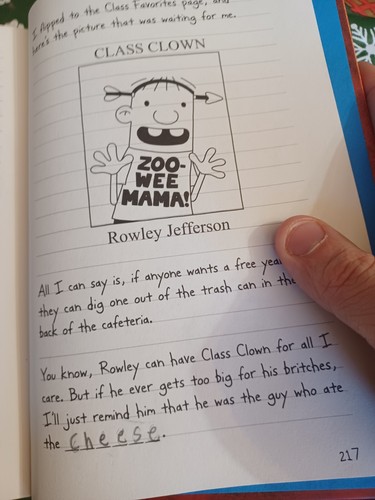 I flipped to the Class Favorites page, and
here's the picture that was waiting for me.
CLASS CLOWN
ZOO-
WEE
MAMA!
Rowley Jefferson
All I can say is, if anyone wants a free
they can dig one out of the trash can in the
back of the cafeteria.
You know, Rowley can have Class Clown for all I
care. But if he ever gets too big for his britches,
I'll just remind him that he was the guy who ate
the cheese.
217